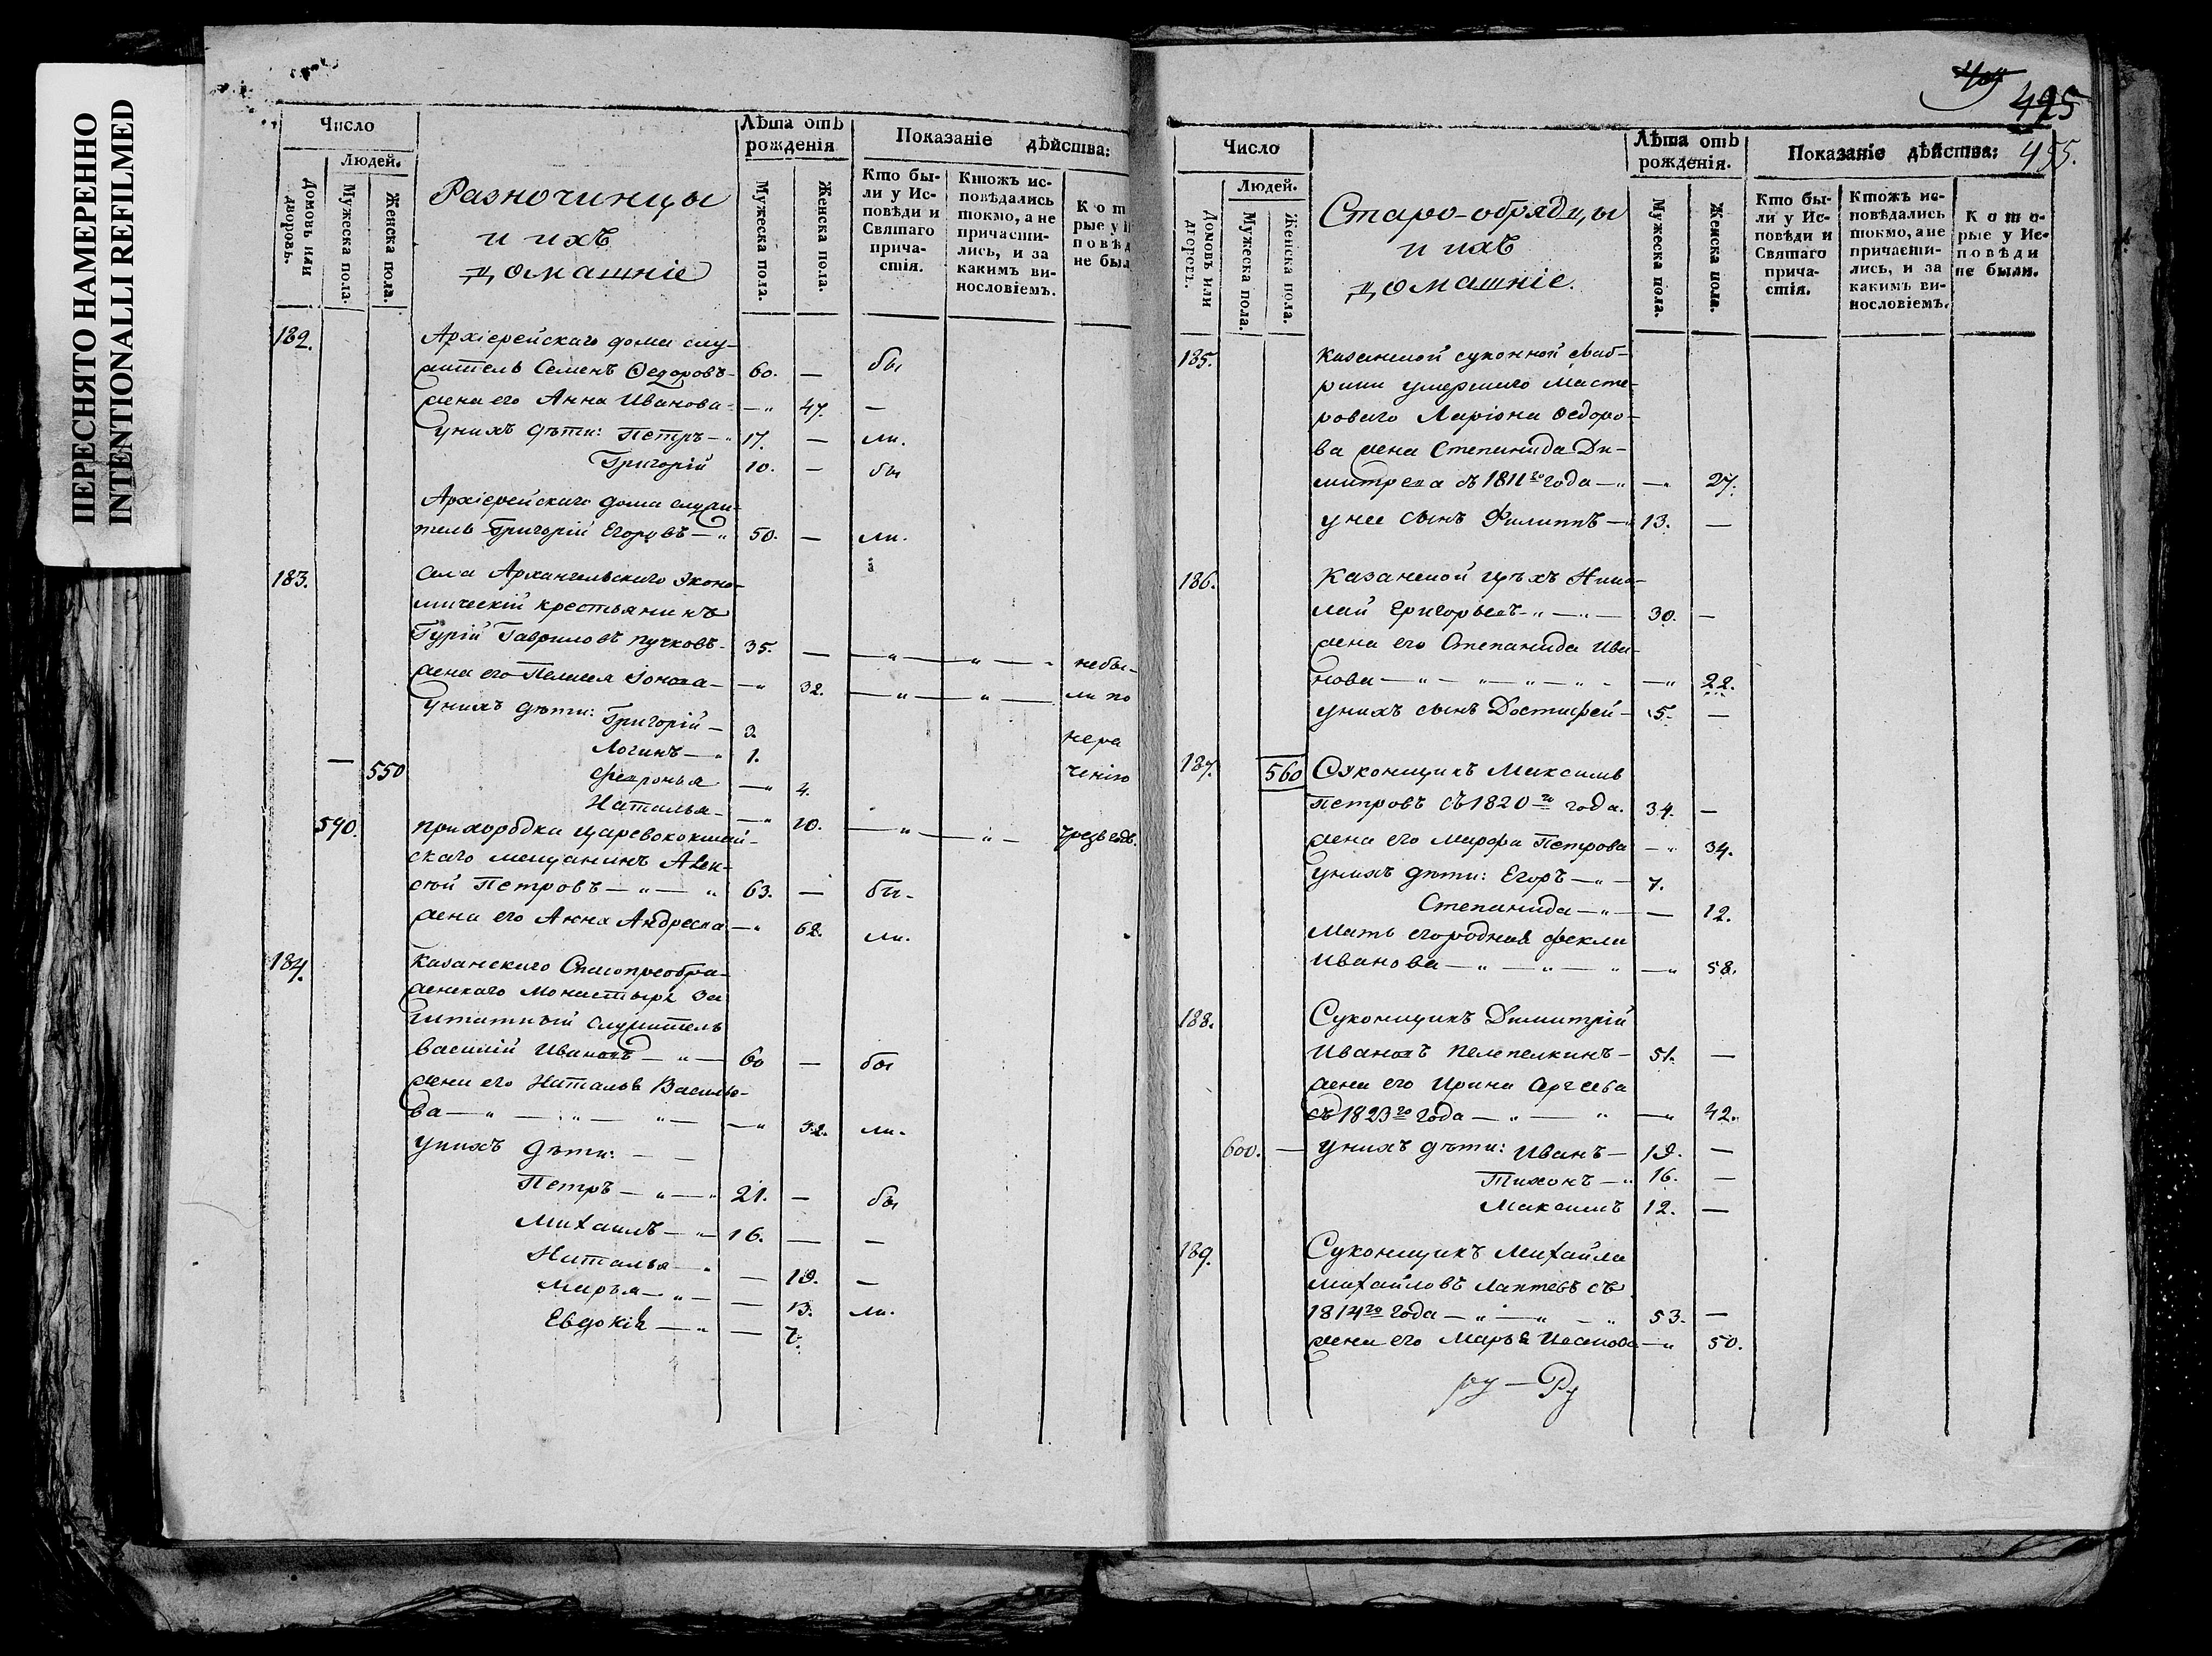 ПЕРЕСНЯТО НАМЕРЕННО
INTENTIONALLI REFILMED
Число
Людей.
Домовъ или дворовъ.
Мужеска пола.
Женска пола.
Разночинцы
и ихъ
домашніе
Лѣта отъ рожденія
Мужеска пола.
Женска пола.
Показаніе дѣйства:
Кто бы-
ли у Ис-
повѣди и
Святаго
прича-
стія.
Ктожъ ис-
повѣдались
токмо, а не
причасти-
лись, и за
какимъ ви-
нословіемъ.
Кот
рые у И
повѣд
не был
182.
Архіерейскаго дома слу-
житель Семенъ Ѳедоровъ - 60. — бы
жена его Анна Иванова - —„ 47. —
у нихъ дѣти: Петръ —„ 17. — ли.
Григорій 10. — бы
Архіерейскаго дома служи-
тель Григорій Егоровъ —„ 50. — ли.
183.
села Архангельскаго Эконо-
мическій крестьянинъ
Гурій Гавриловъ Пучковъ - 35. — —„—„— небы-
жена его Пелагея Іонова — —„ 32. —„—„— ли по
у нихъ дѣти: Григорій — 3.
нера
Логинъ —„ 1.
— 550
Февронья —„ 4.
ченію
Наталья - —„ 10.
590.
пригородка Царевококшай-
—„—„— чрезъ годъ.
скаго мещанинъ Алек-
сѣй Петровъ —„—„ 63. — бы-
жена его Анна Андреева —„ 62. ли.
184.
Казанскаго Спасопреобра-
женскаго Монастыря за
штатный служитель
Василій Ивановъ —„— 60 — бы
жена его Наталья Василье-
ва —„—„—„— —„ 52. ли.
у нихъ дѣти: — —
Петръ —„—„ 21. — бы
Михаилъ —„— 16. — —
Наталья —„ — 19. —
Марья —„— — 13. ли.
Евдокія —„ — 7.
405
425
455.
Число
Людей.
Домовъ или дворовъ.
Мужеска пола.
Женска пола.
Старо-обрядцы
и ихъ
домашніе.
Лѣта отъ рожденія.
Мужеска пола.
Женска пола.
Показаніе дѣйства:
Кто бы-
ли у Ис-
повѣди и
Святаго
прича-
стія.
Ктожъ ис-
повѣдались
токмо, а не
причасти-
лись, и за
какимъ ви-
нословіемъ.
Кото-
рые у Ис-
повѣди
не были.
185.
Казанской суконной фаб-
рики умершаго Масте-
роваго Ларіона Ѳедоро-
ва жена Степанида Ди-
митрева съ 1811го года —„ —„ 27.
у нее сынъ Филиппъ —„ 13. —
186.
Казанской цѣхъ Нико-
лай Григорьевъ -„—„— 30. —
жена его Степанида Ива-
нова —„—„—„—„- —„ 22.
у нихъ сынъ Достифей — 5. —
187.
560
Суконщикъ Максимъ
Петровъ съ 1820го года. 34. —
жена его Марфа Петрова —„ 34.
у нихъ дѣти: Егоръ —„— 7.
Степанида —„— — 12.
Мать его родная Фекла
Иванова —„—„—„ —„ 58.
188.
Суконщикъ Димитрій
Ивановъ Пелепелкинъ — 51. —
жена его Ирина Сергеева
съ 1823го года —„—„ —„ 42.
600. —
у нихъ дѣти: Иванъ — 19. —
Тихонъ —„ 16. —
Максимъ 12. —
189.
Суконщикъ Михайла
Михайловъ Лаптевъ съ
1814го года —„—„—„ 53. —
жена его Марья Иванова —„ 50.